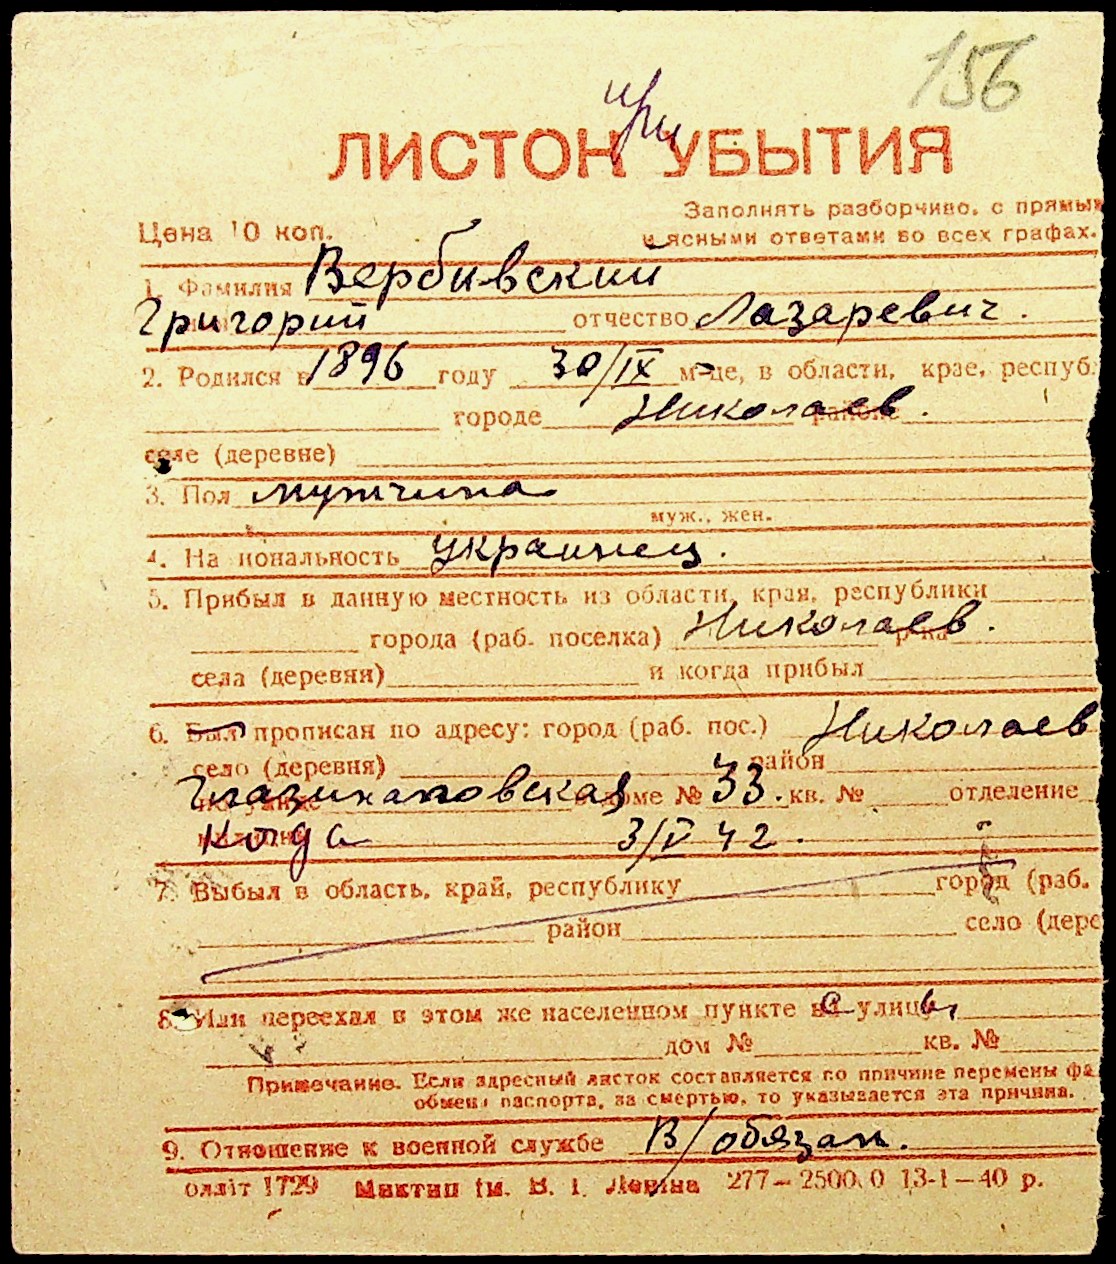 156
при
ЛИСТОК УБЫТИЯ
Заполнять разборчиво, с прямым
Цена 10 коп.
и ясными ответами во всех графах.
1. Фамилия Вербивский
Григорий отчество Лазаревич.
2. Родился в 1896 году 30/IX м-це, в области, крае, респуб.
городе Николаев. районе
селе (деревне)
3. Пол мужчина
муж., жен.
4. Национальность украинец.
5. Прибыл в данную местность из области, края, республики
города (раб. поселка) Николаев.
села (деревни) и когда прибыл
6. Был прописан по адресу: город (раб. пос.) Николаев
село (деревня) район
доме № 33. кв. № отделение
Когда 3/V 42.
7. Выбыл в область, край, республику город (раб.
район село (дере
8. Или переехал в этом же населенном пункте с улицы
дом № кв. №
Примечание. Если адресный листок составляется по причине перемены фа
обмена паспорта, за смертью, то указывается эта причина.
9. Отношение к военной службе В/обязан.
олліт 1729 Миктип ім. В. І. Леніна 277—25000 13-1—40 р.